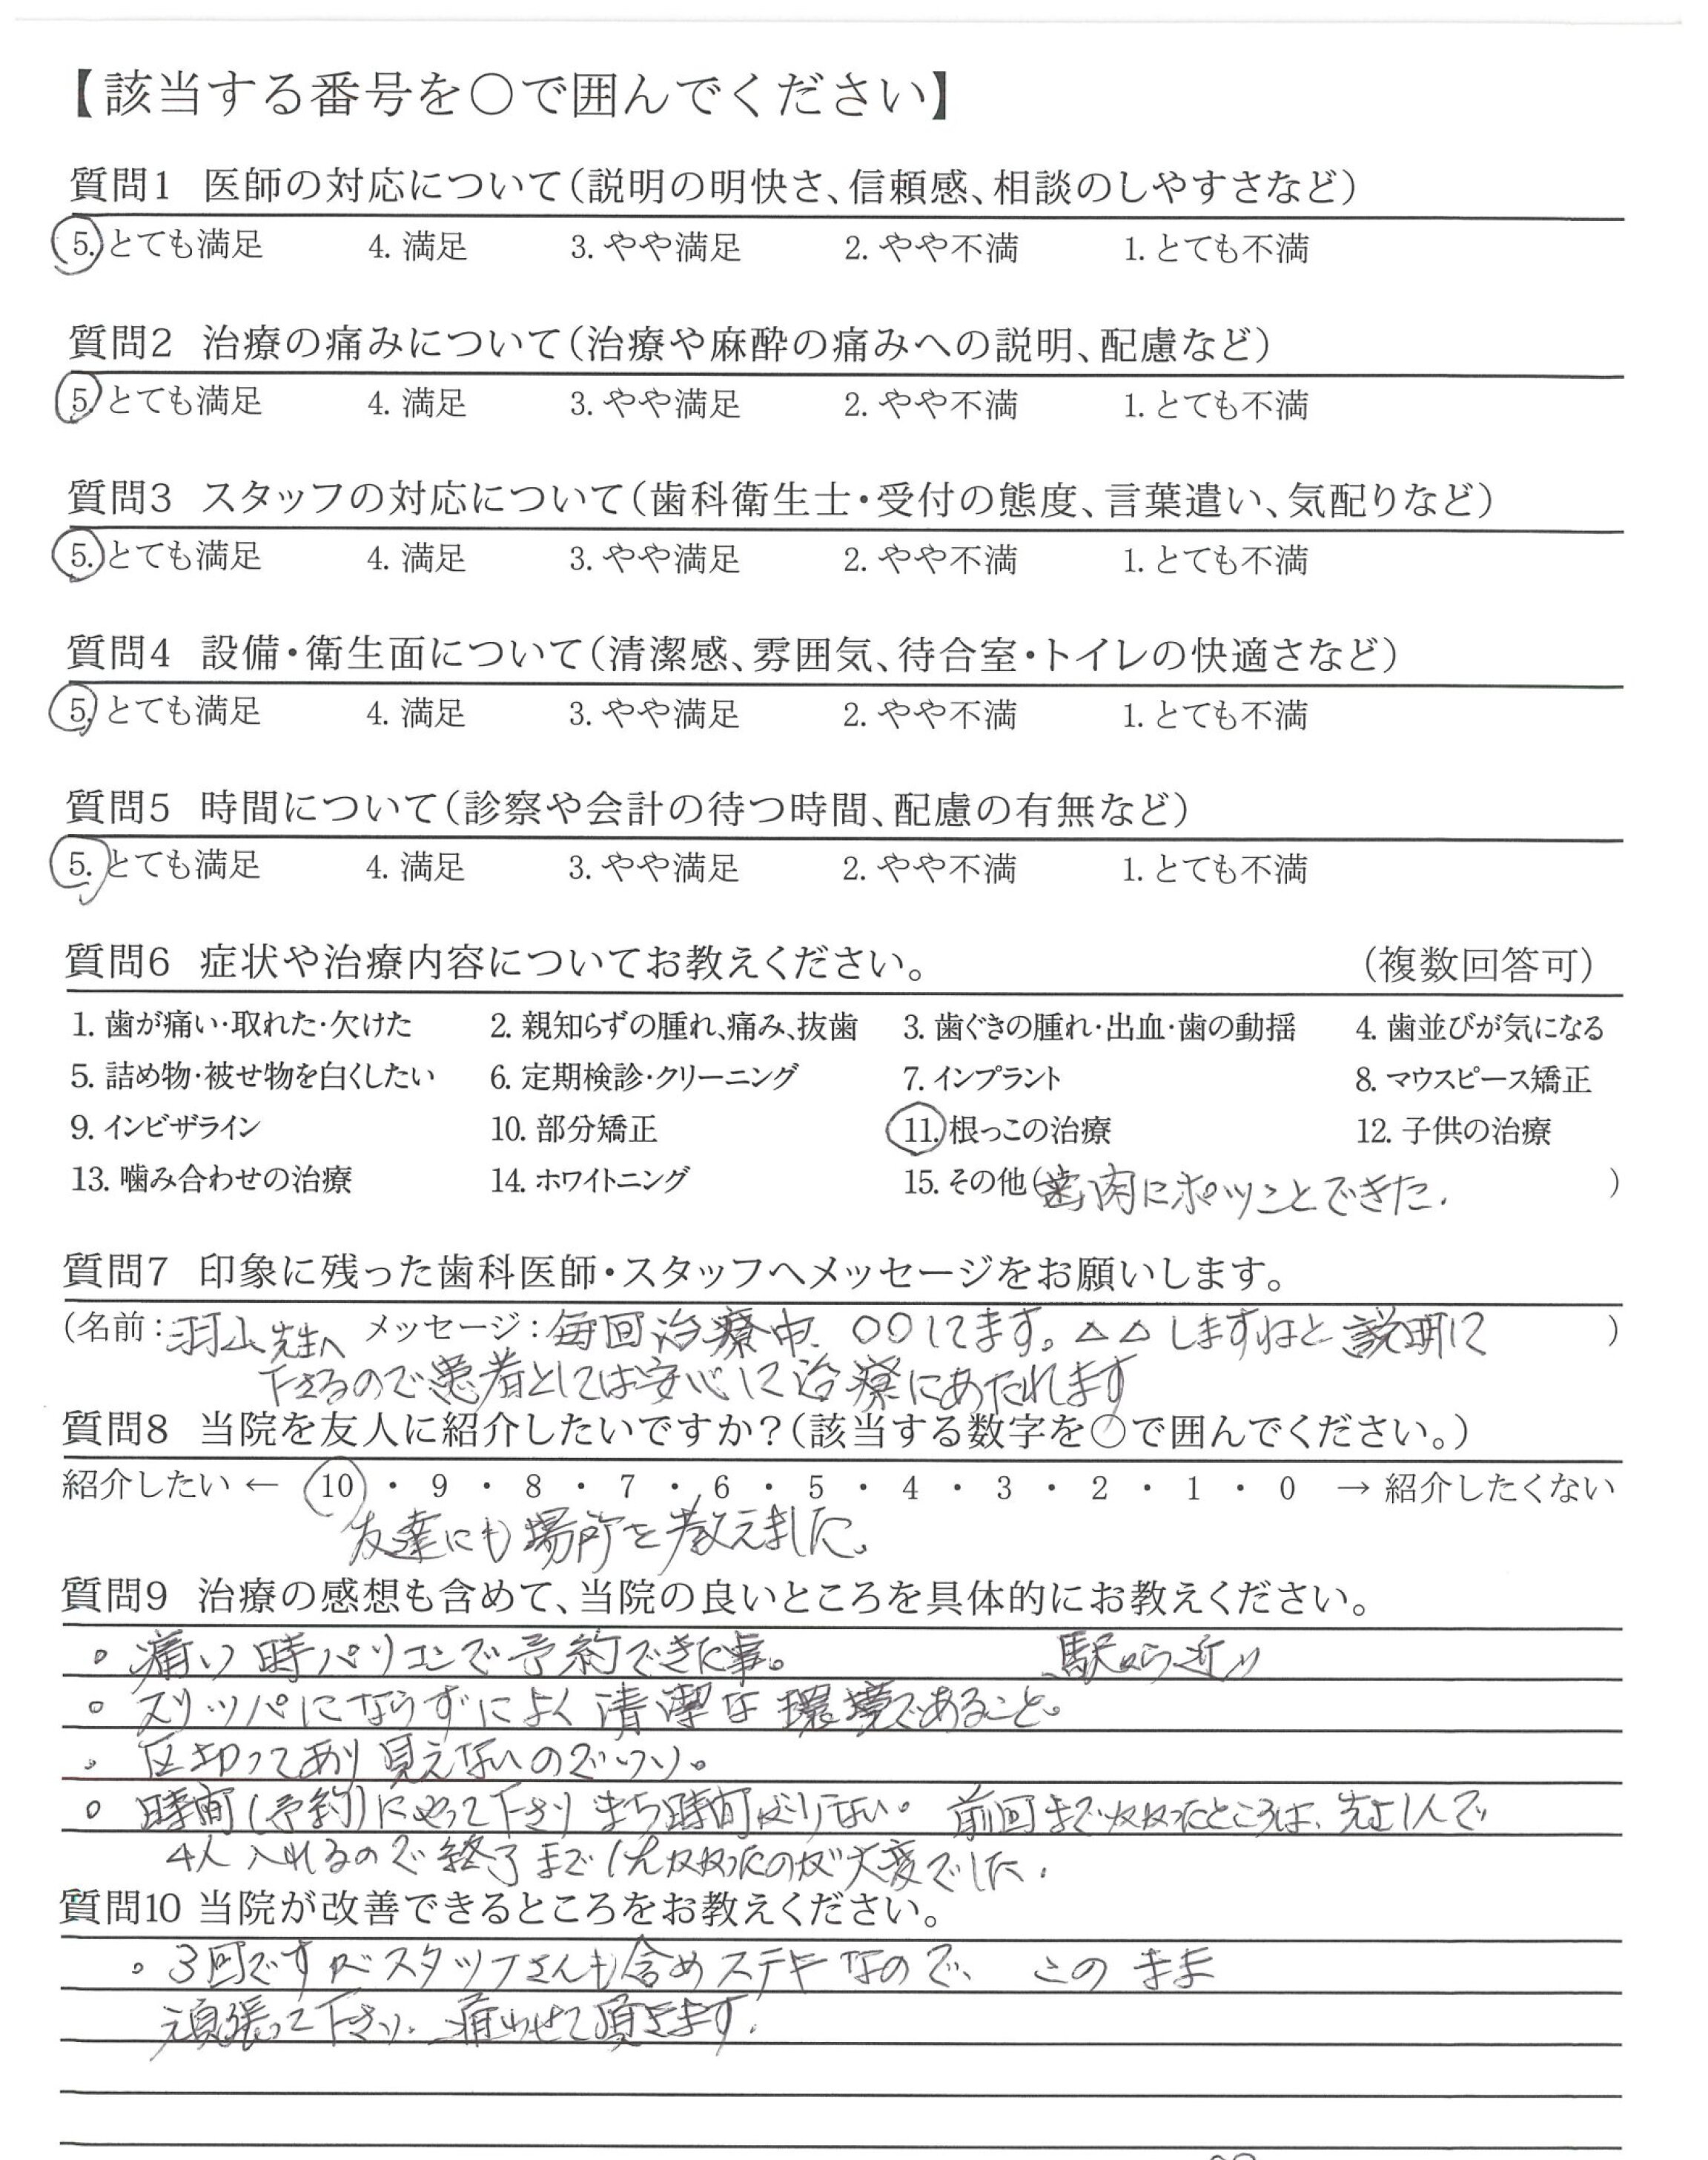 【該当する番号を○で囲んでください】
質問1 医師の対応について(説明の明快さ、信頼感、相談のしやすさなど)
5. とても満足 4. 満足 3. やや満足 2. やや不満 1. とても不満
質問2 治療の痛みについて(治療や麻酔の痛みへの説明、配慮など)
5. とても満足 4. 満足 3. やや満足 2. やや不満 1. とても不満
質問3 スタッフの対応について(歯科衛生士・受付の態度、言葉遣い、気配りなど)
5. とても満足 4. 満足 3. やや満足 2. やや不満 1. とても不満
質問4 設備・衛生面について(清潔感、雰囲気、待合室・トイレの快適さなど)
5. とても満足 4. 満足 3. やや満足 2. やや不満 1. とても不満
質問5 時間について(診察や会計の待つ時間、配慮の有無など)
5. とても満足 4. 満足 3. やや満足 2. やや不満 1. とても不満
質問6 症状や治療内容についてお教えください。 (複数回答可)
1. 歯が痛い・取れた・欠けた 2. 親知らずの腫れ、痛み、抜歯 3. 歯ぐきの腫れ・出血・歯の動揺 4. 歯並びが気になる
5. 詰め物・被せ物を白くしたい 6. 定期検診・クリーニング 7. インプラント 8. マウスピース矯正
9. インビザライン 10. 部分矯正 11. 根っこの治療 12. 子供の治療
13. 噛み合わせの治療 14. ホワイトニング 15. その他(歯肉にポツンとできた. )
質問7 印象に残った歯科医師・スタッフへメッセージをお願いします。
(名前:羽山先生へ メッセージ:毎回治療中、○○してます。△△しますねと説明して )
下さるので患者としては安心して治療にあたれます
質問8 当院を友人に紹介したいですか?(該当する数字を○で囲んでください。)
紹介したい ← 10 ・ 9 ・ 8 ・ 7 ・ 6 ・ 5 ・ 4 ・ 3 ・ 2 ・ 1 ・ 0 → 紹介したくない
友達にも場所を教えました。
質問9 治療の感想も含めて、当院の良いところを具体的にお教えください。
○ 痛い時パソコンで予約できた事。 駅から近い
○ スリッパにならずによく清潔な環境であること。
○ 区切ってあり見えないのでいい。
○ 時間(予約)にやって下さりまち時間がない。 前回までかかったところは、先生1人で
4人入れるので終了まで かかったのが大変でした.
質問10 当院が改善できるところをお教えください。
○ 3回ですがスタッフさんも含めステキなので、 このまま
頑張って下さい. 通わせて頂きます.